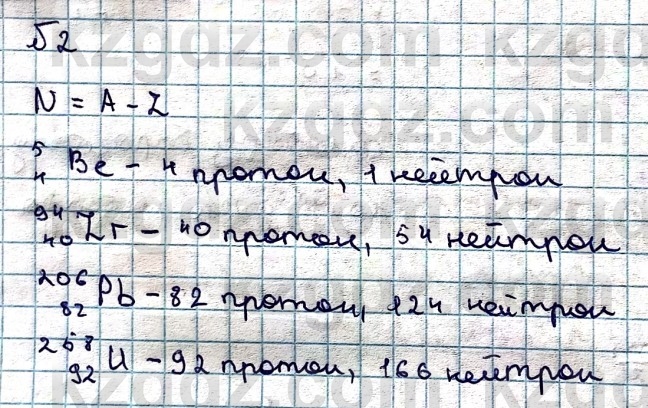 №2
N = A - Z
⁵₄Be - 4 протон, 1 нейтрон
⁹⁴₄₀Zr - 40 протон, 54 нейтрон
²⁰⁶₈₂Pb - 82 протон, 124 нейтрон
²⁵⁸₉₂U - 92 протон, 166 нейтрон
kzgdz.com